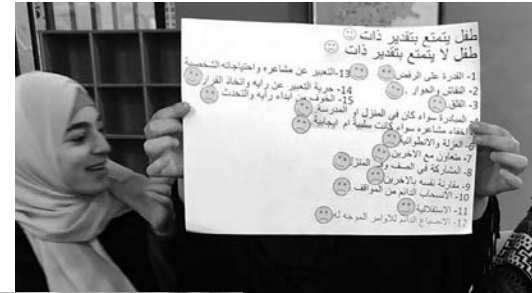 طفل يتمتع بتقدير ذات
طفل لا يتمتع بتقدير ذات
1- القدرة على الرفض
2- النقاش والحوار
3- القلق
4- المبادرة سواء كان في المنزل او المدرسة
5- اخفاء مشاعره سواء كانت سلبية ام ايجابية
6- العزلة والانطوائية
7- متعاون مع الاخرين
8- المشاركة في الصف وفي المنزل
9- مقارنة نفسه بالاخرين
10- الانسحاب الدائم من المواقف
11- الاستقلالية
12- الانصياع الدائم للاوامر الموجه له
13- التعبير عن مشاعره واحتياجاته الشخصية
14- حرية التعبير عن رايه واتخاذ القرار
15- الخوف من ابداء رأيه والتحدث